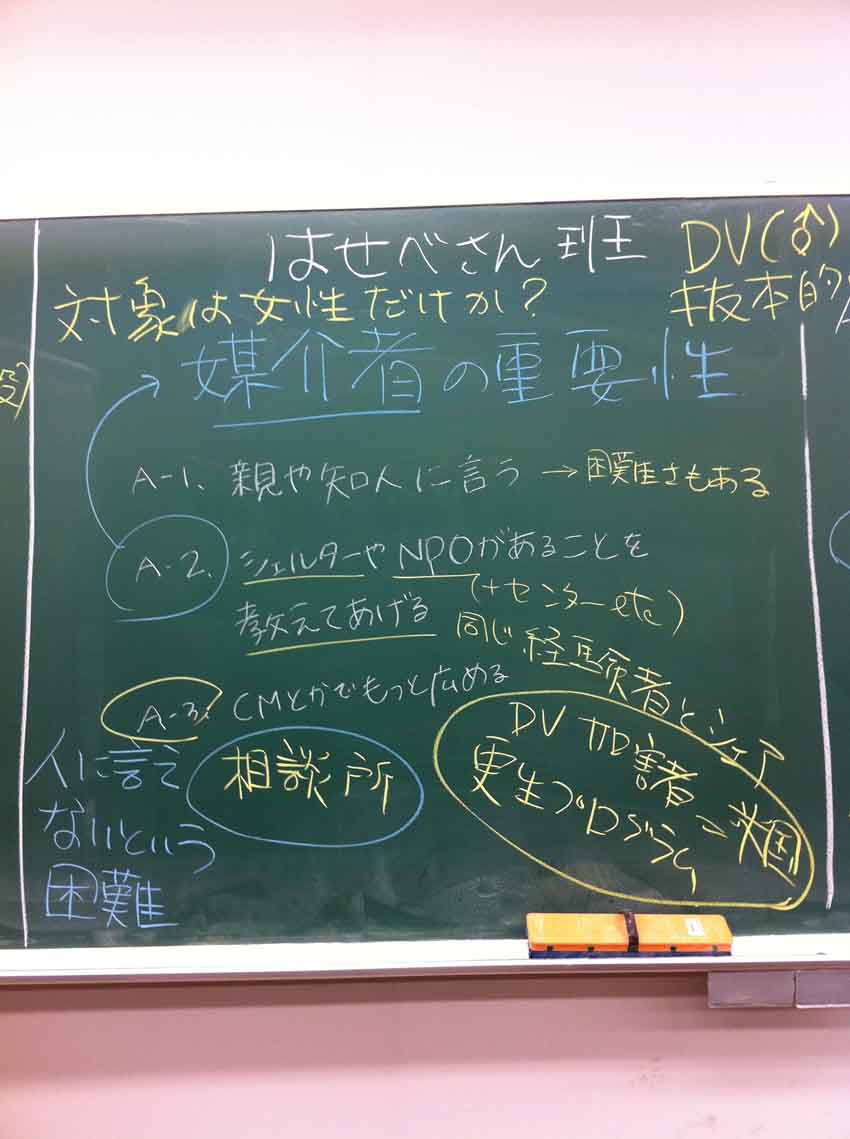 はせべさん 班
DV(♂)
対象は女性だけか？
抜本的
媒介者の重要性
A-1. 親や知人に言う → 困難さもある
A-2. シェルターやNPOがあることを
教えてあげる
(+センターetc)
同じ経験者とシェア
A-3. CMとかでもっと広める
人に言え
ないという
困難
相談所
DV加害者
更生プログラム
米国